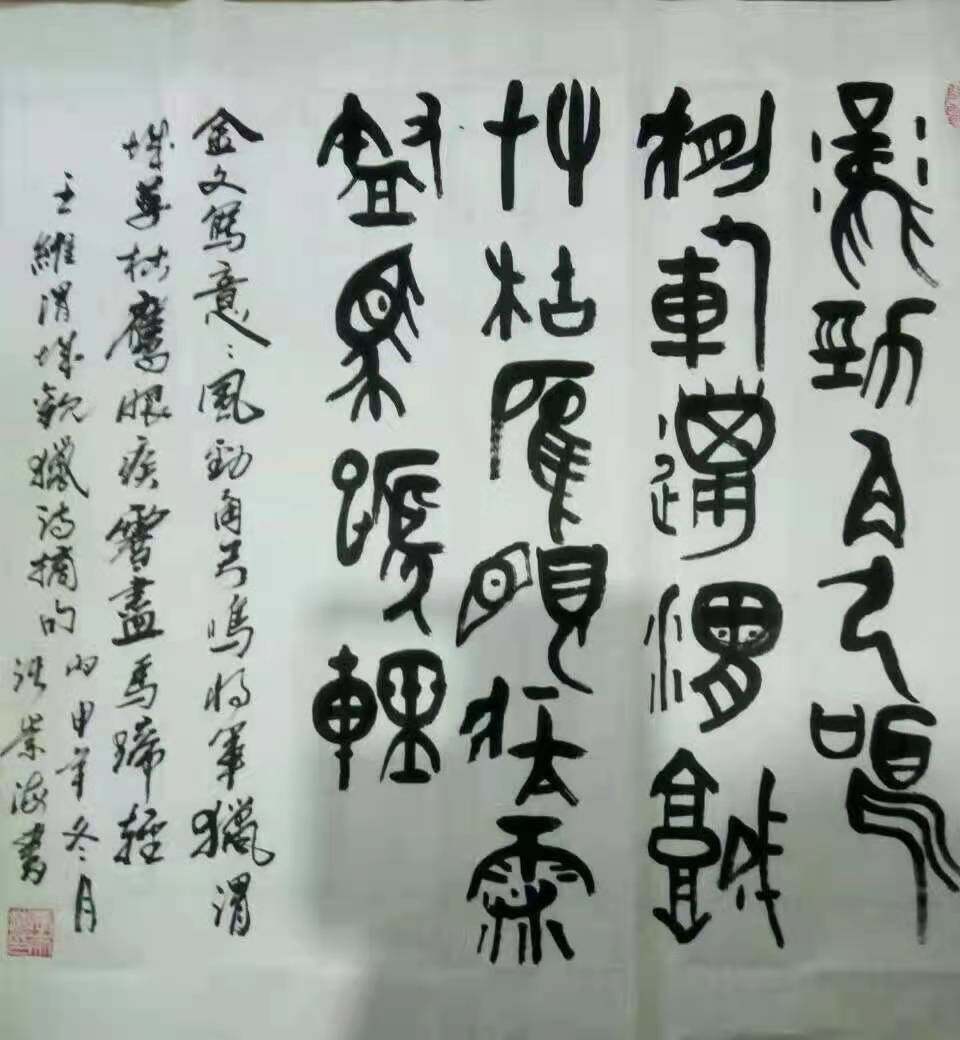 風勁角弓鳴
將軍獵渭城
艸枯鷹眼疾雪
盡馬蹄輕
金文寫意：風勁角弓鳴將軍獵渭
城草枯鷹眼疾雪盡馬蹄輕
王維渭城觀獵詩摘句
丙申年冬月
海書